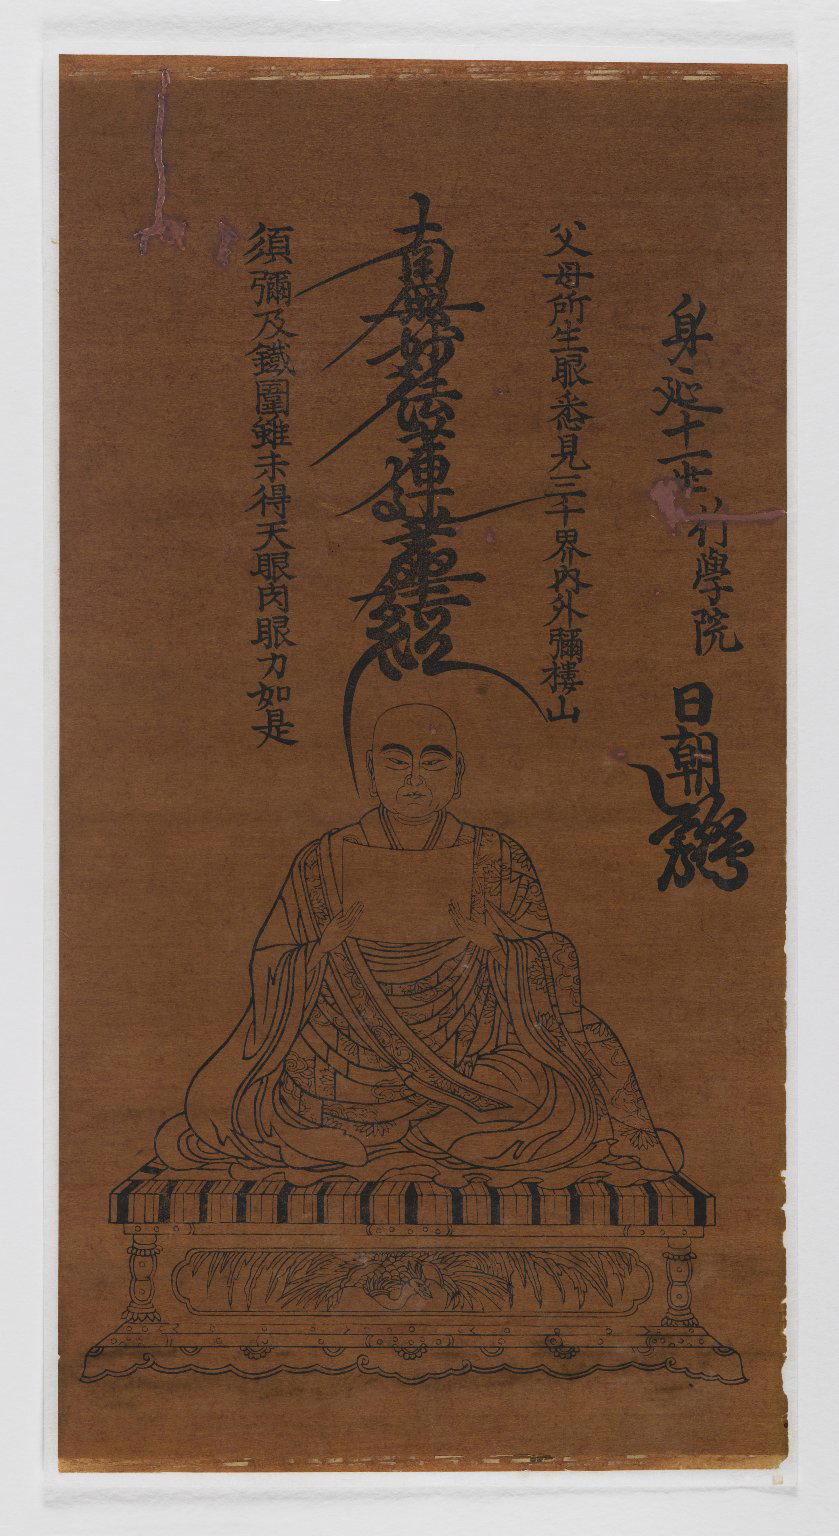 身延十一世行學院
日朝
父母所生眼悉見三千界內外彌樓山
南無妙法蓮華經
須彌及鐵圍雖未得天眼肉眼力如是